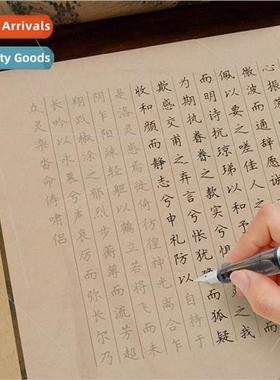 Arrivals
ty Goods
心振
微波而通辞愿诚
佩以要之嗟佳人之
而明诗抗琼珶以和予
为期执眷眷之款实兮惧 之我
欺感交甫之弃言兮怅犹 而狐疑
收和颜而静志兮申礼防以自持于
是洛灵感焉徙倚彷徨神光离合乍
阴乍阳竦轻躯以鹤立若将飞而未
翔践椒涂之郁烈步蘅薄而流芳超
长吟以永慕兮声哀厉而弥长尔乃
众灵杂沓命俦啸侣